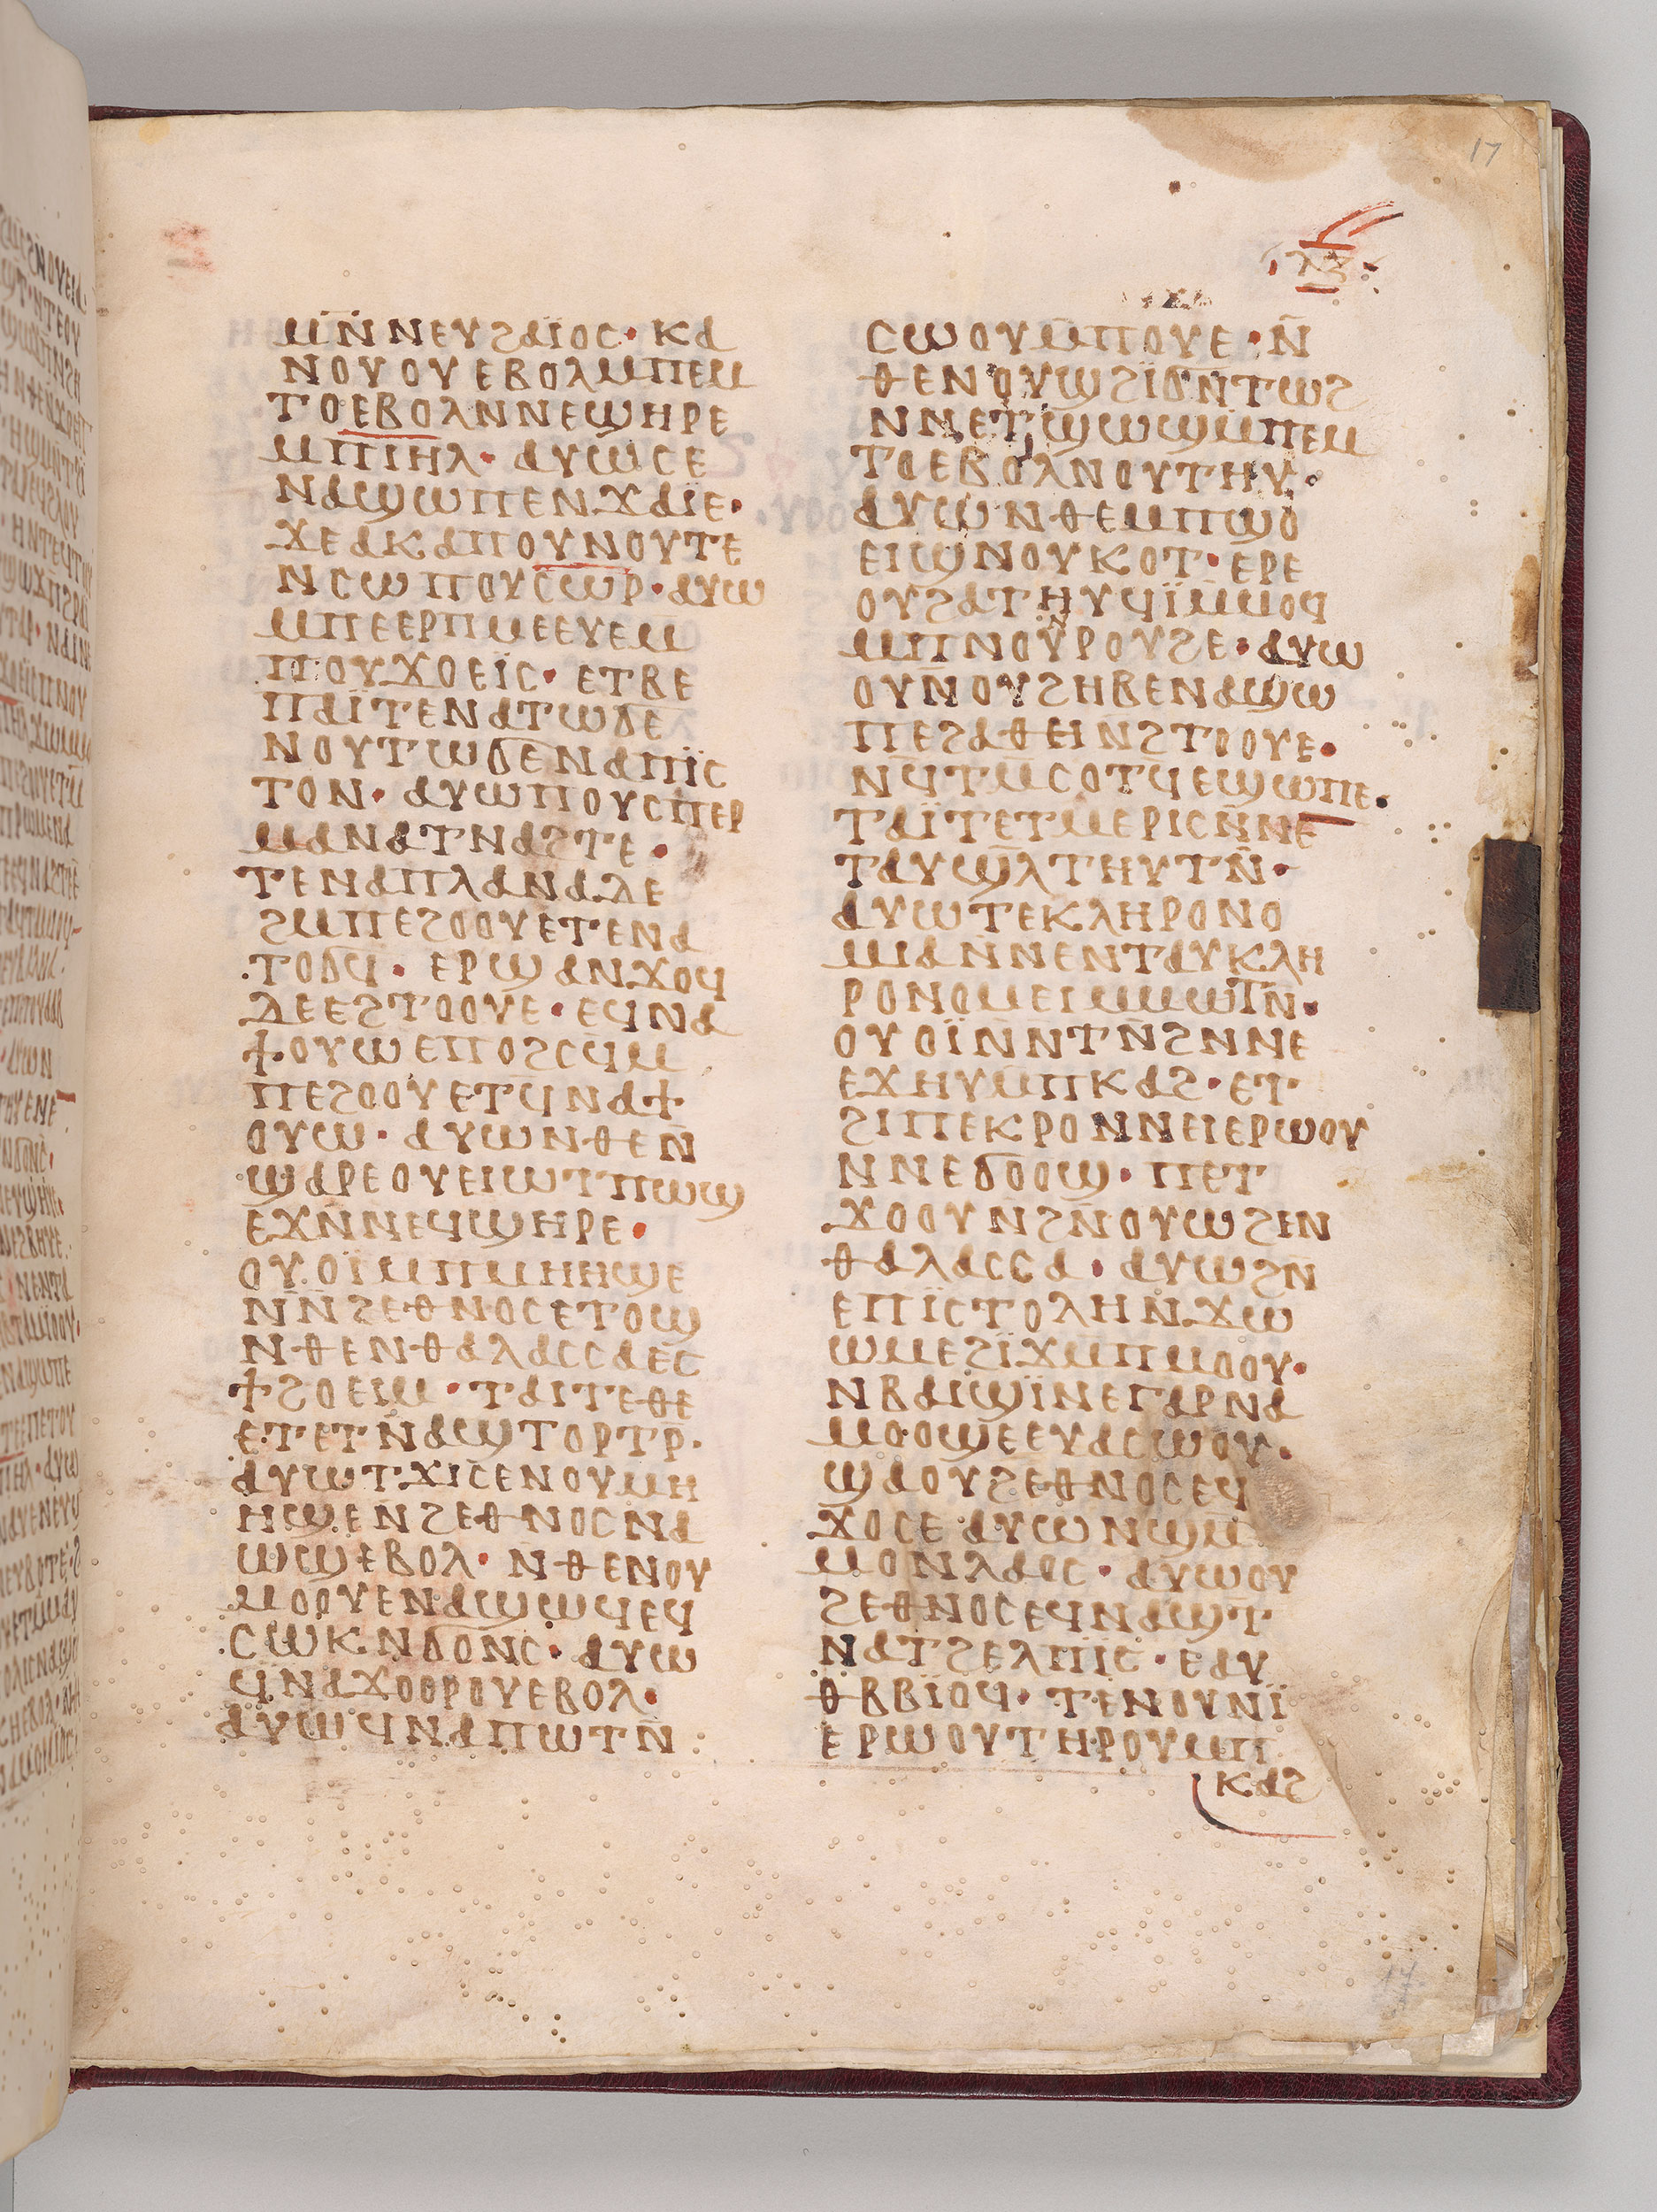 17
ⲗ̅ⲍ̅
ⲙⲛ̅ⲛⲉⲩϩⲁⲓ̈ⲟⲥ · ⲕⲁ
ⲛⲟⲩⲟⲩⲉⲃⲟⲗⲙⲡⲉⲙ
ⲧⲟⲉⲃⲟⲗⲛⲛⲉϣⲏⲣⲉ
ⲙⲡⲓⲏⲗ · ⲁⲩⲱⲥⲉ
ⲛⲁϣⲱⲡⲉⲛϫⲁⲓ̈ⲉ ·
ϫⲉⲁⲕⲁⲡⲟⲩⲛⲟⲩⲧⲉ
ⲛⲥⲱⲡⲟⲩⲥⲱⲣ · ⲁⲩⲱ
ⲙⲡⲉⲉⲣⲡⲙⲉⲉⲩⲉⲙ
ⲡⲟⲩϫⲟⲉⲓ̈ⲥ · ⲉⲧⲃⲉ
ⲡⲁⲓ̈ⲧⲉⲛⲁⲧⲱϭⲉ
ⲛⲟⲩⲧⲱϭⲉⲛⲁⲡⲓ̈ⲥ
ⲧⲟⲛ · ⲁⲩⲱⲡⲟⲩⲥⲡⲉⲣ
ⲙⲁⲛⲁⲧⲛⲁϩⲧⲉ ·
ⲧⲉⲛⲁⲡⲗⲁⲛⲁⲇⲉ
ϩⲙⲡⲉϩⲟⲟⲩⲉⲧⲉⲛⲁ
ⲧⲟϭϥ · ⲉⲣϣⲁⲛϫⲟϥ
ⲇⲉⲉϩⲧⲟⲟⲩⲉ · ⲉϥⲛⲁ
ϯⲟⲩⲱⲉⲡⲟϩⲥϥⲙ
ⲡⲉϩⲟⲟⲩⲉⲧϥⲛⲁϯ
ⲟⲩⲱ · ⲁⲩⲱⲛⲑⲉⲛ̅
ϣⲁⲣⲉⲟⲩⲉⲓⲱⲧⲡⲱϣ
ⲉϫⲛ̅ⲛⲉϥϣⲏⲣⲉ ·
ⲟⲩⲟⲓ̈ⲙⲡⲙⲏⲏϣⲉ
ⲛⲛ̅ϩⲉⲑⲛⲟⲥⲉⲧⲟϣ
ⲛⲑⲉⲛⲑⲁⲗⲁⲥⲥⲁⲉⲥ
ϯϩⲟⲉⲓⲙ · ⲧⲁⲓⲧⲉⲑⲉ
ⲉⲧⲉⲧⲛ̅ⲁϣⲧⲟⲣⲧⲣ̅ ·
ⲁⲩⲱⲧϫⲓⲥⲉⲛⲟⲩⲙⲏ
ⲏϣⲉⲛϩⲉⲑⲛⲟⲥⲛⲁ
ⲱϣⲉⲃⲟⲗ · ⲛⲑⲉⲛⲟⲩ
ⲙⲟⲟⲩⲉⲛⲁϣⲱϥⲉϥ
ⲥⲱⲕⲛϭⲟⲛⲥ · ⲁⲩⲱ
ϥⲛⲁϫⲟⲟⲣⲟⲩⲉⲃⲟⲗ ·
ⲁⲩⲱϥⲛⲁⲡⲱⲧⲛ̅
ⲥⲱⲟⲩⲙ̅ⲡⲟⲩⲉ · ⲛ̅
ⲑⲉⲛⲟⲩⲱϩⲓϭⲛ̅ⲧⲱϩ
ⲛⲛⲉⲧϣⲱϣⲙⲡⲉⲙ
ⲧⲟⲉⲃⲟⲗⲛⲟⲩⲧⲏⲩ ·
ⲁⲩⲱⲛⲑⲉⲙⲡϣⲟ
ⲉⲓϣⲛⲟⲩⲕⲟⲧ · ⲉⲣⲉ
ⲟⲩϩⲁⲧⲏⲩϥⲓ̈ⲙⲙⲟϥ
ⲙⲡⲛⲟⲩⲣⲟⲩϩⲉ · ⲁⲩⲱ
ⲟⲩⲛⲟⲩϩⲏⲃⲉⲛⲁϣⲱ
ⲡⲉϩⲁⲑⲉⲏⲛϩⲧⲟⲟⲩⲉ ·
ⲛϥⲧⲙ̅ⲥⲟⲧϥⲉϣⲱⲡⲉ ·
ⲧⲁⲓ̈ⲧⲉⲧⲙⲉⲣⲓⲥⲛ̅ⲛⲉ
ⲧⲁⲩϣⲗ̅ⲧⲏⲩⲧⲛ̅ ·
ⲁⲩⲱⲧⲉⲕⲗⲏⲣⲟⲛⲟ
ⲙⲓⲁⲛⲛⲉⲛⲧⲁⲩⲕⲗⲏ
ⲣⲟⲛⲟⲙⲉⲓⲙⲙⲱⲧⲛ̅ ·
ⲟⲩⲟⲓ̈ⲛⲛⲧⲛ̅ϩⲛⲛⲉ
ⲉϫⲏⲩⲙ̅ⲡⲕⲁϩ · ⲉⲧ
ϩⲓⲡⲉⲕⲣⲟⲛⲛⲉⲓⲉⲣⲱⲟⲩ
ⲛⲛⲉϭⲟⲟϣ · ⲡⲉⲧ
ϫⲟⲟⲩⲛϩⲛ̅ⲟⲩⲱϩⲉⲛ
ⲑⲁⲗⲁⲥⲥⲁ · ⲁⲩⲱϩⲛ̅
ⲉⲡⲓ̈ⲥⲧⲟⲗⲏⲛϫⲱ
ⲱⲙⲉϩⲓ̈ϫⲙⲡⲙⲟⲟⲩ ·
ⲛⲃⲁⲓϣⲓ̈ⲛⲉⲅⲁⲣⲛⲁ
ⲙⲟⲟϣⲉⲉⲩⲁⲥⲱⲟⲩ ·
ϣⲁⲟⲩϩⲉⲑⲛⲟⲥⲉϥ
ϫⲟⲥⲉⲁⲩⲱⲛϣⲙ̅
ⲙⲟⲛⲗⲁⲟⲥ · ⲁⲩⲱⲟⲩ
ϩⲉⲑⲛⲟⲥⲉϥⲛⲁϣⲧ
ⲛⲁⲧϩⲉⲗⲡⲓ̈ⲥ · ⲉⲁⲩ
ⲑⲃⲃⲓ̈ⲟϥ · ⲧⲉⲛⲟⲩⲛⲓ̈
ⲉⲣⲱⲟⲩⲧⲏⲣⲟⲩⲙⲡ
ⲕⲁϩ